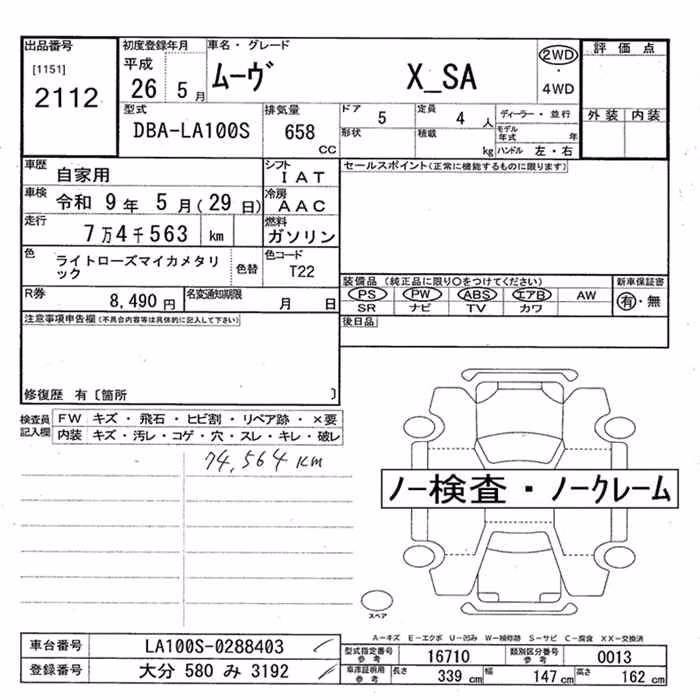 出品番号
[1151]
2112
初度登録年月
平成
26 5月
車名・グレード
ムーヴ X_SA
2WD
・
4WD
評価点
外装 内装
型式
DBA-LA100S
排気量
658
CC
ドア
5
定員
4人
ディーラー・並行
形状
積載
kg
モデル年式 年
ハンドル 左・右
車歴
自家用
シフト
IAT
セールスポイント(正常に機能するものに限ります)
車検
令和 9年 5月(29日)
冷房
AAC
走行
7万4千563 km
燃料
ガソリン
色
ライトローズマイカメタリック
色替
色コード
T22
R券
8,490円
名変通知期限
月 日
装備品 (純正品に限り○をつけてください)
PS PW ABS エアB AW
SR ナビ TV カワ
新車保証書
有・無
注意事項申告欄(不具合内容等は具体的に記入して下さい)
後日品
修復歴 有〔箇所 〕
検査員記入欄
FW キズ・飛石・ヒビ割・リペア跡・×要
内装 キズ・汚レ・コゲ・穴・スレ・キレ・破レ
74,564 KM
ノー検査・ノークレーム
スペア
A-キズ E-エクボ U-凹み W-補修跡 S-サビ C-腐食 XX-交換済
車台番号 LA100S-0288403
登録番号 大分 580 み 3192
型式指定番号
参考
16710
類別区分番号
参考
0013
車庫証明用
参考
長さ
339 cm
幅
147 cm
高さ
162 cm